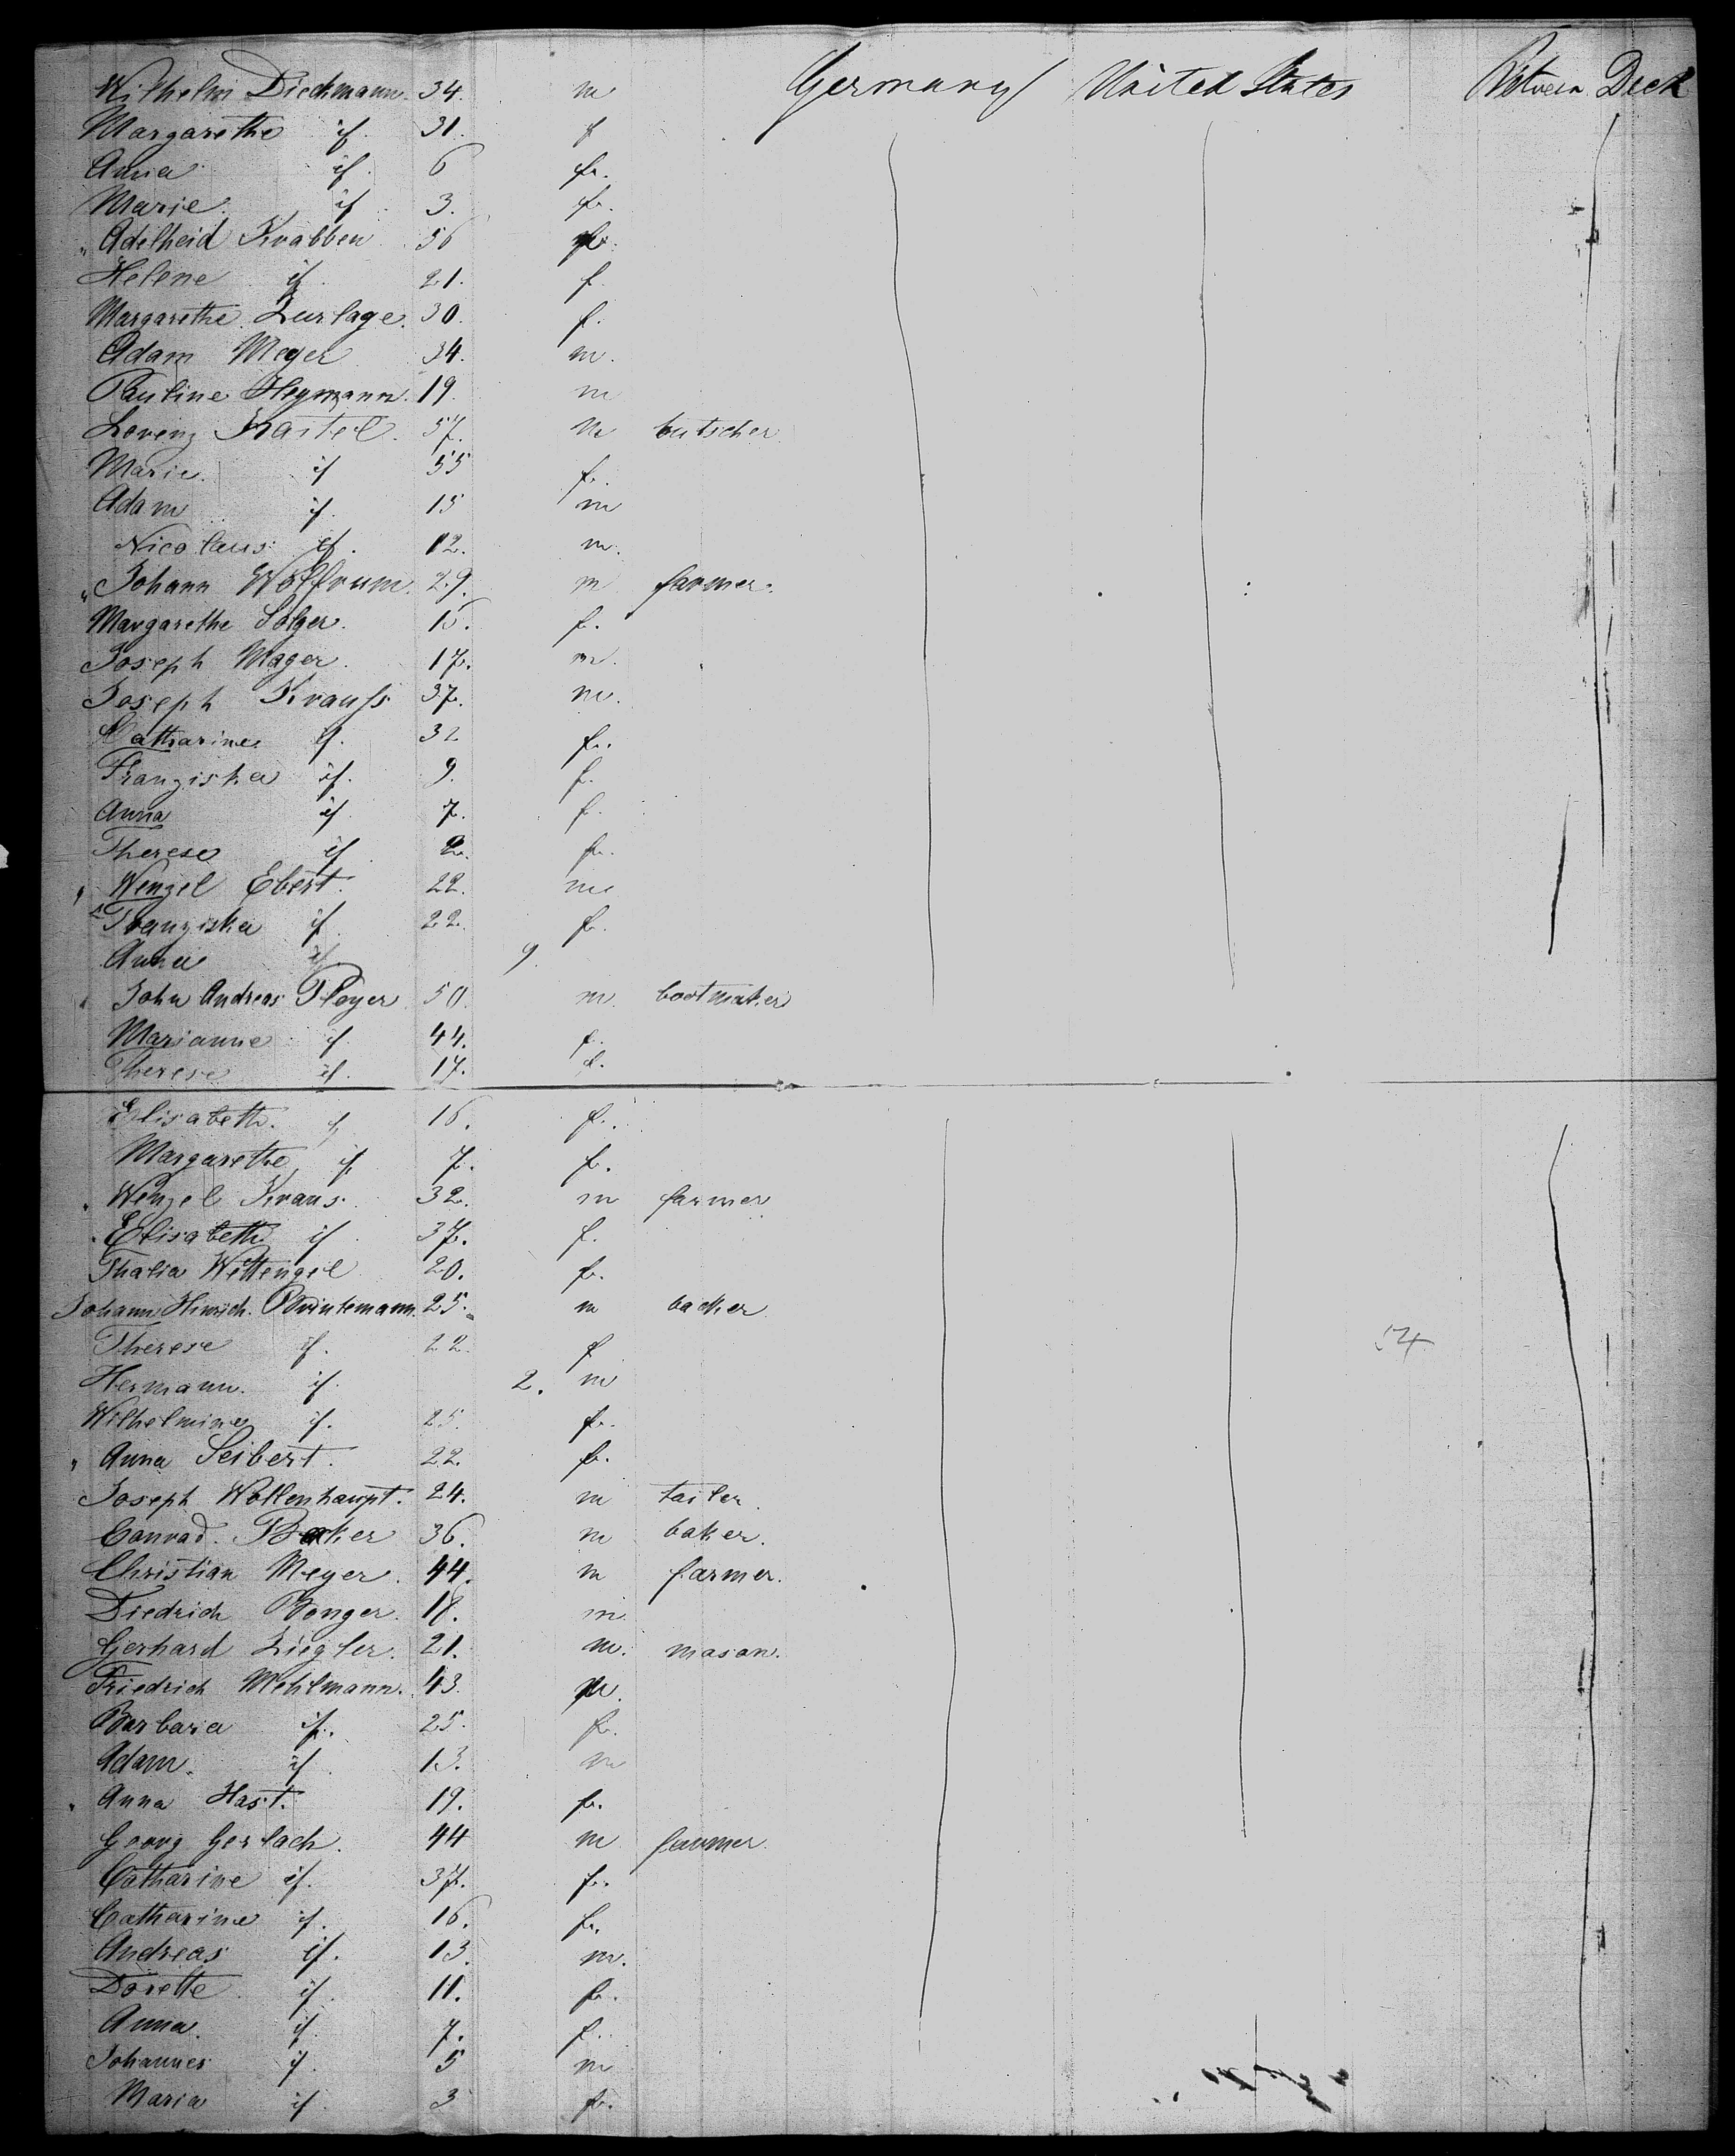 Wilhelm Dieckmann. 34. m Germany United States Between Deck
Margarethe if. 31. f
Anna if. 6 f.
Marie. if 3. f.
" Adelheid Krabben 56 f.
Helene if. 21. f.
Margarethe Lurlage. 30. f.
Adam Meyer 34. m.
Pauline Heymann. 19. m
Lorenz Kastel. 57. m butscher
Marie. if 55 f.
Adam if. 15 m
Nicolaus if. 12. m.
" Johann Wolfrum. 29. m farmer.
Margarethe Solger. 15. f.
Joseph Mager. 17. m.
Joseph Krauss 37. m.
Catharine if. 32 f.
Franziska if. 9. f.
Anna if 7. f.
Therese if 2. f.
" Wenzel Ebert. 22. m
" Franziska if. 22. f.
Anna if. 9.
" John Andreas Ployer 50. m. bootmaker
Marianne if 44. f.
Therese if. 17. f.
Elisabeth. if 16. f.
Margarethe if 7. f.
" Wenzel Kraus. 32. m farmer
" Elisabeth if 37. f.
Thalia Wettengel 20. f.
Johann Hinrich. Brintemann. 25. m backer
Therese if. 22. f
54
Hermann. if. 2. m
Wilhelmine if. 25. f.
" Anna Seibert. 22. f.
Joseph Wollenhaupt. 24. m tailer
Conrad. Beker 36. m baker.
Christian Meyer. 44. m farmer.
Diedrich Bonger. 18. m.
Gerhard Ziegler. 21. m. mason.
Friedrich Mehlmann. 43. m.
Barbara if. 25. f.
Adam. if 13. m
" Anna Hast. 19. f.
Georg Gerlach. 44 m farmer.
Catharine if. 37. f.
Catharine if. 16. f.
Andreas if. 13. m.
Dorette if. 11. f.
Anna. if. 7. f.
Johannes if. 5 m
Maria if. 3 f.